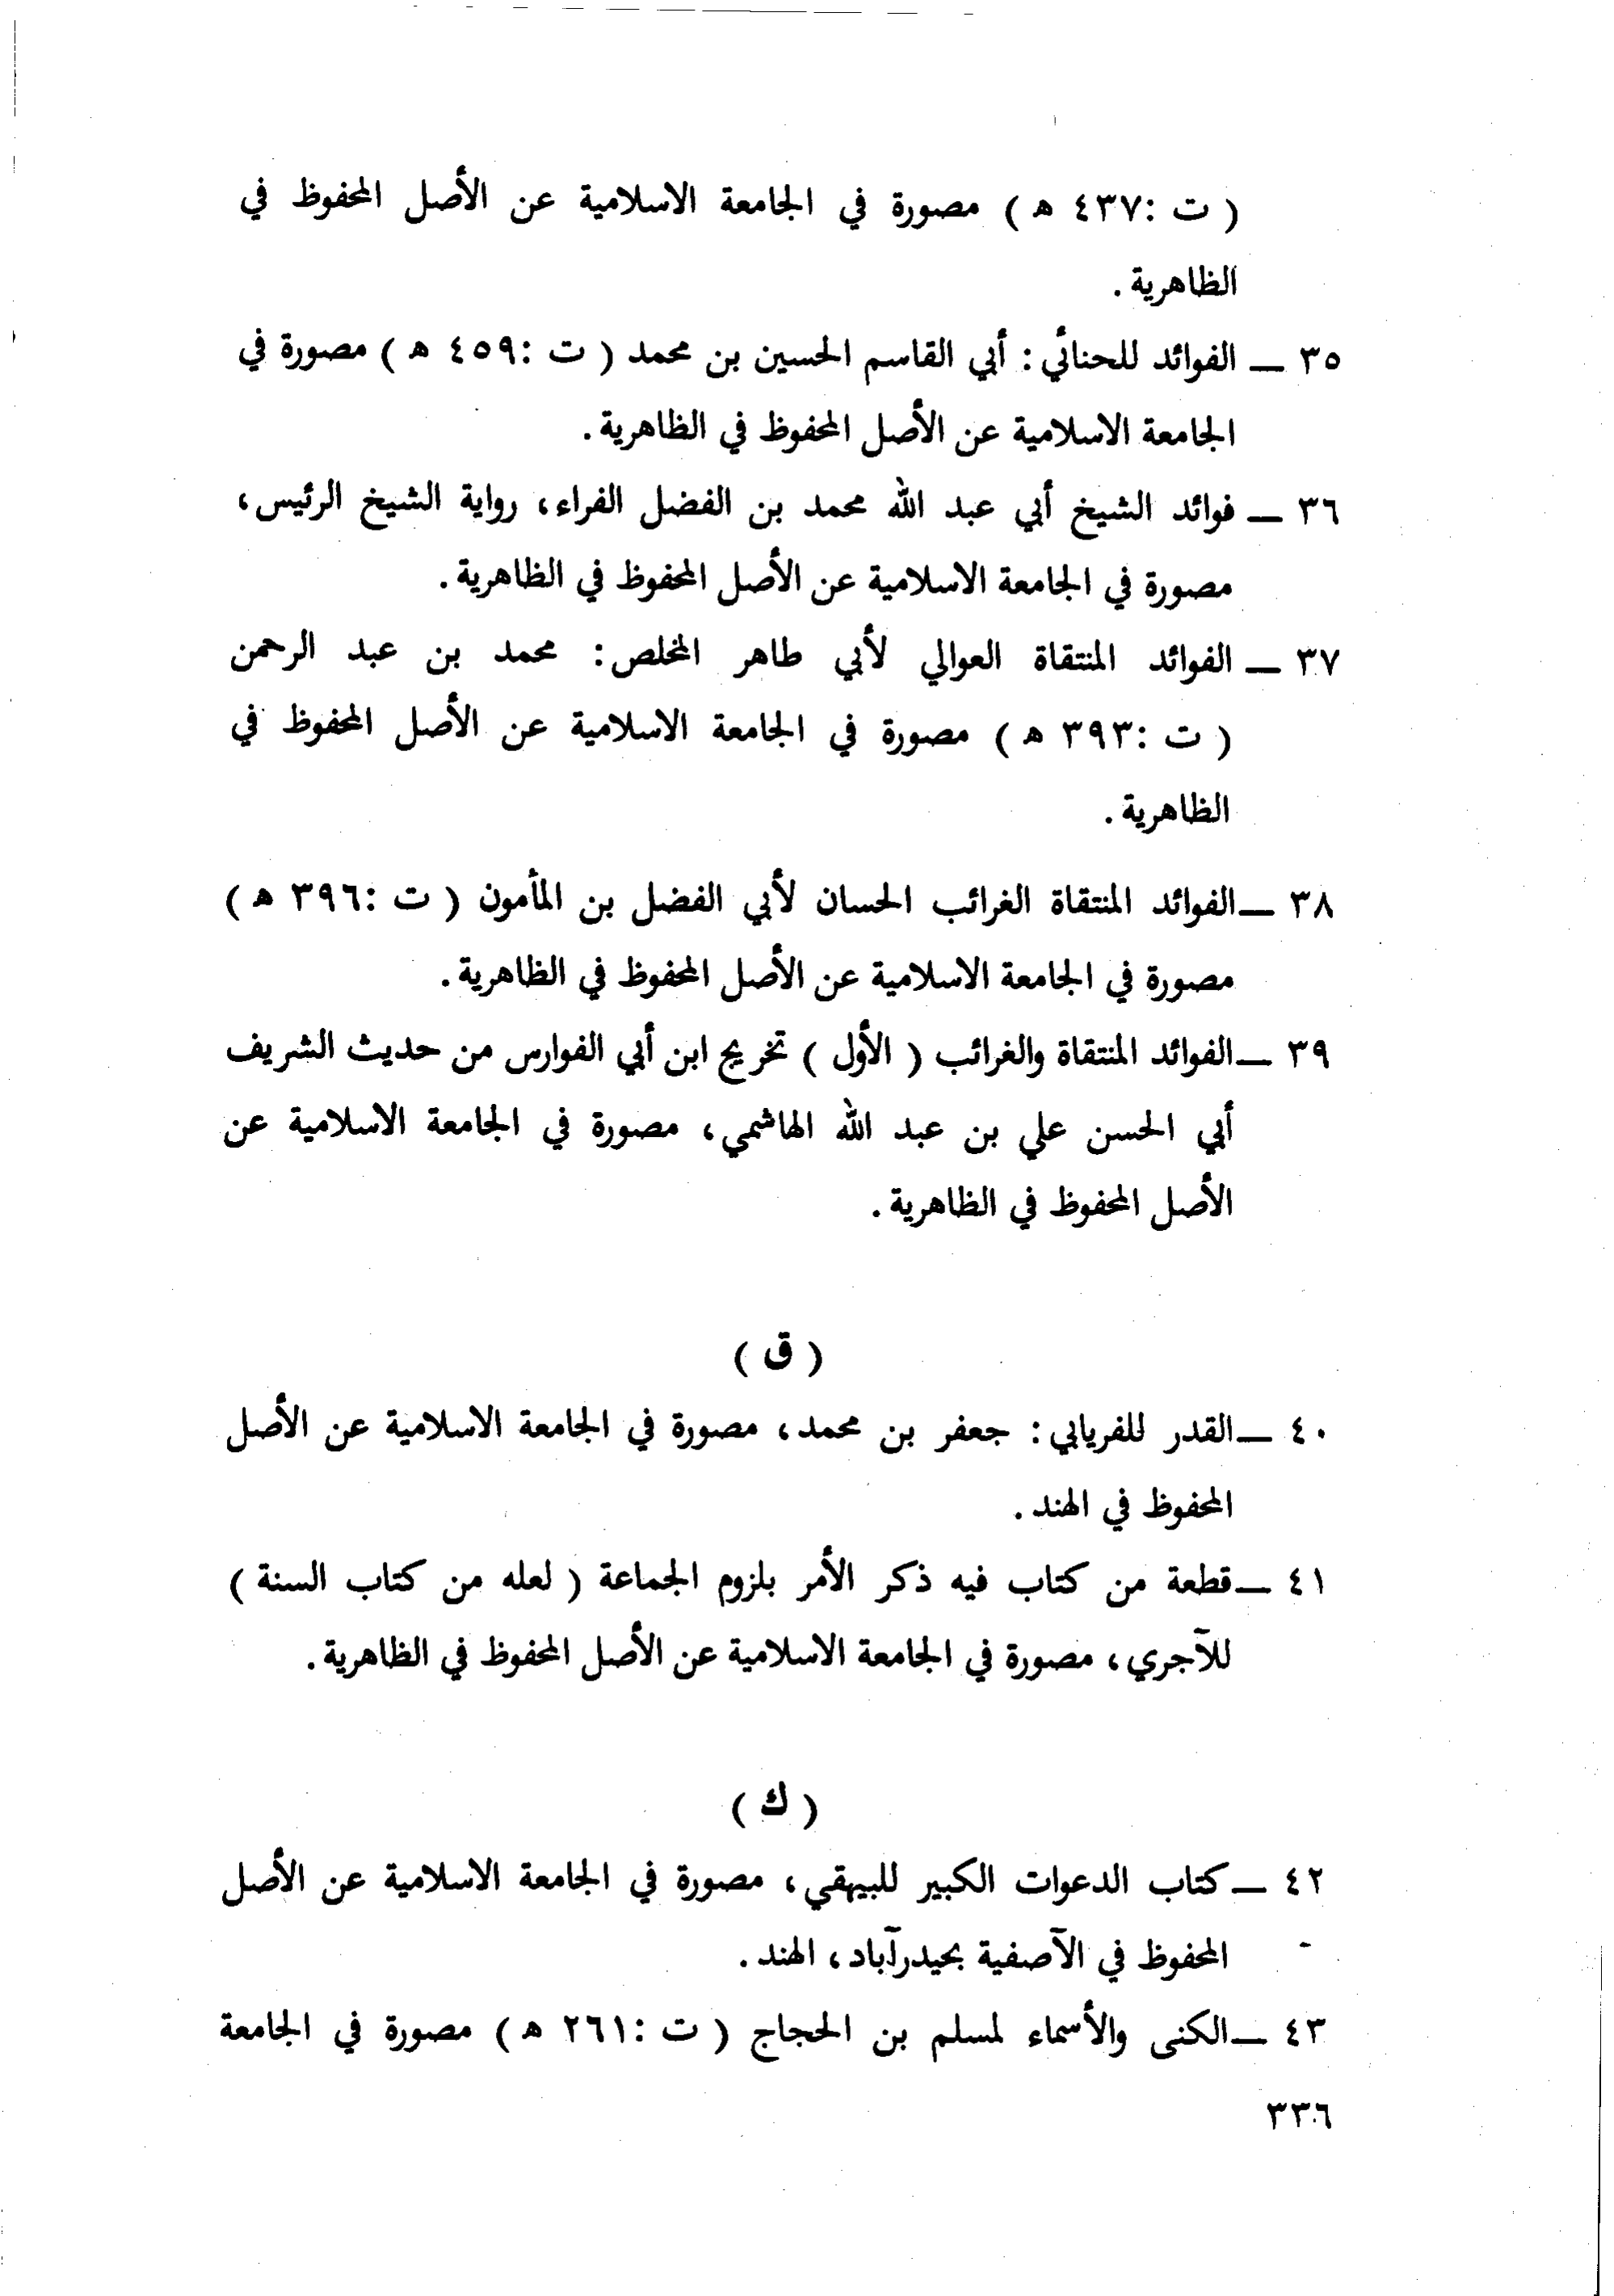 ( ت :٤٣٧ ه ) مصورة في الجامعة الاسلامية عن الأصل المحفوظ في
الظاهرية .
٣٥ ــ الفوائد للحنائي : أبي القاسم الحسين بن محمد ( ت :٤٥٩ ه ) مصورة في
الجامعة الاسلامية عن الأصل المحفوظ في الظاهرية .
٣٦ ــ فوائد الشيخ أبي عبد الله محمد بن الفضل الفراء، رواية الشيخ الرئيس،
مصورة في الجامعة الاسلامية عن الأصل المحفوظ في الظاهرية .
٣٧ ــ الفوائد المنتقاة العوالي لأبي طاهر المخلص: محمد بن عبد الرحمن
( ت :٣٩٣ ه ) مصورة في الجامعة الاسلامية عن الأصل المحفوظ في
الظاهرية .
٣٨ ــ الفوائد المنتقاة الغرائب الحسان لأبي الفضل بن المأمون ( ت :٣٩٦ ه )
مصورة في الجامعة الاسلامية عن الأصل المحفوظ في الظاهرية .
٣٩ ــ الفوائد المنتقاة والغرائب ( الأول ) تخريج ابن أبي الفوارس من حديث الشريف
أبي الحسن علي بن عبد الله الهاشمي، مصورة في الجامعة الاسلامية عن
الأصل المحفوظ في الظاهرية .
( ق )
٤٠ ــ القدر للفريابي : جعفر بن محمد، مصورة في الجامعة الاسلامية عن الأصل
المحفوظ في الهند .
٤١ ــ قطعة من كتاب فيه ذكر الأمر بلزوم الجماعة ( لعله من كتاب السنة )
للآجري، مصورة في الجامعة الاسلامية عن الأصل المحفوظ في الظاهرية .
( ك )
٤٢ ــ كتاب الدعوات الكبير للبيهقي، مصورة في الجامعة الاسلامية عن الأصل
المحفوظ في الآصفية بحيدرآباد، الهند .
٤٣ ــ الكنى والأسماء لمسلم بن الحجاج ( ت :٢٦١ ه ) مصورة في الجامعة
٣٣٦